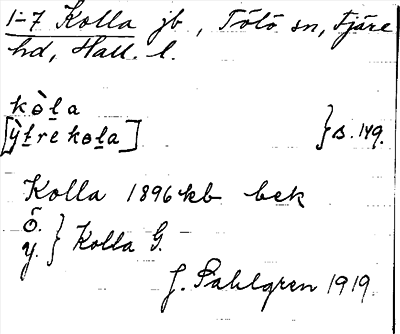 1-7 Kolla jb, Tölö sn, Fjäre
hd, Hall. l.
kòla
[ỳtrekola] } s. 149.
Kolla 1896 kb bek
Ö.
Y. } Kolla G.
J. Sahlgren 1919